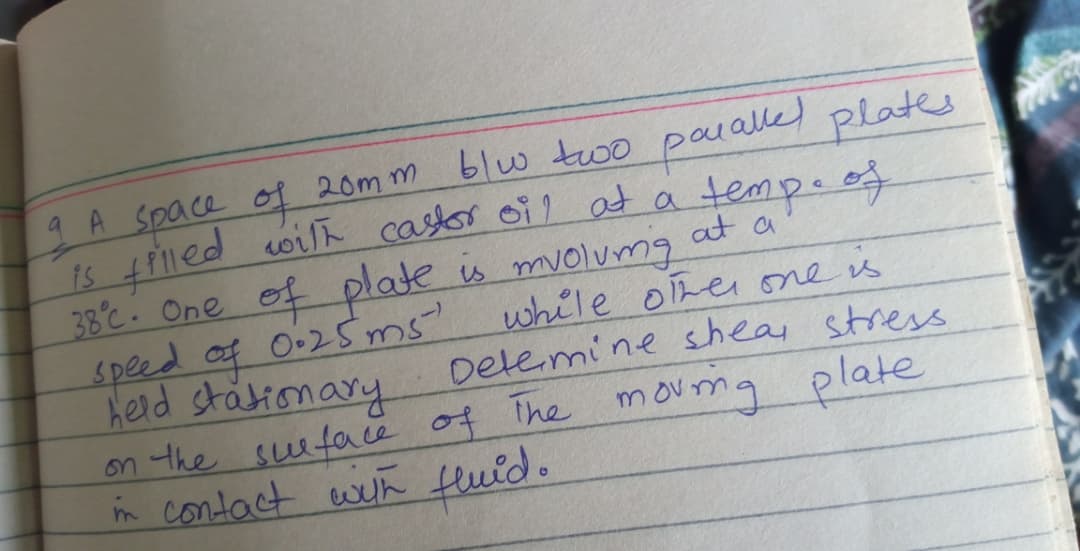 q A space of 20mm b/w two parallel plates
is filled with castor oil at a temp. of
38°C. One of plate is mvolvmg at a
speed of 0.25 ms⁻¹ while other one is
held stationary Determine shear stress
on the surface of The moving plate
in contact with fluid.